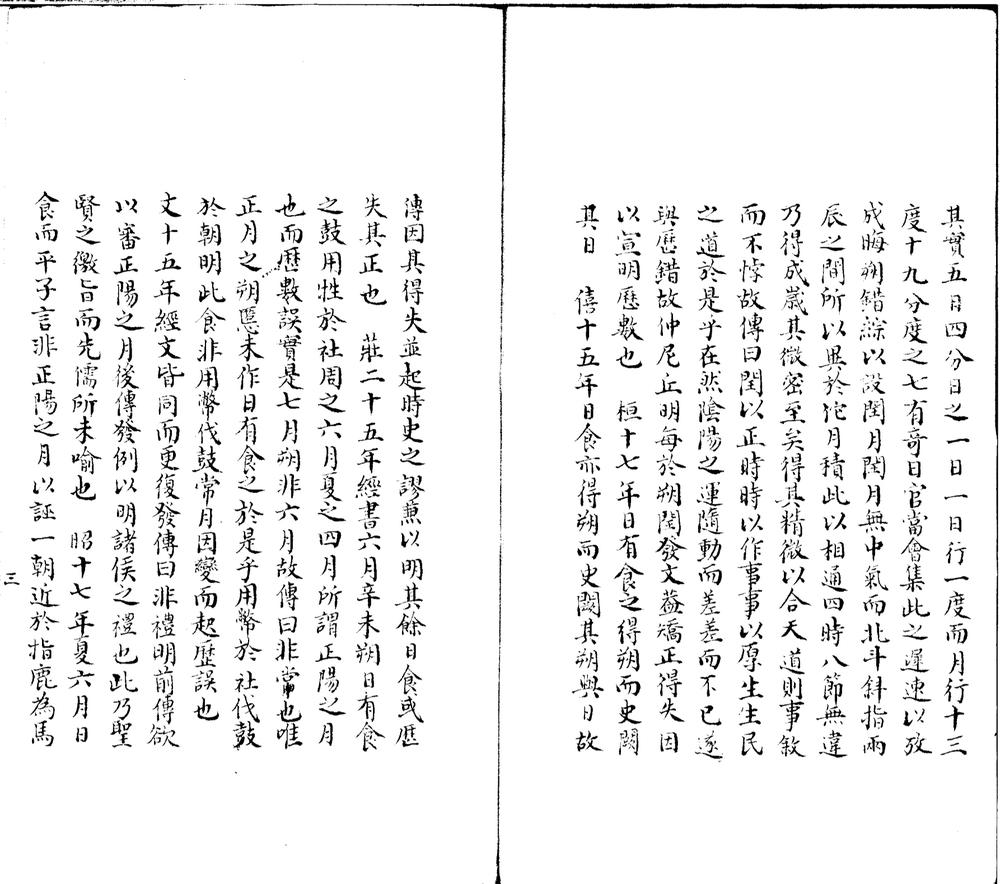 其實五日四分日之一日一日行一度而月行十三
度十九分度之七有奇日官當會集此之遲速以攷
成晦朔錯綜以設閏月閏月無中氣而北斗斜指兩
辰之間所以異於佗月積此以相通四時八節無違
乃得成嵗其微密至矣得其精微以合天道則事敘
而不悖故傳曰閏以正時時以作事事以厚生生民
之道於是乎在然隂陽之運隨動而差差而不已遂
與厯錯故仲尼丘明每於朔閏發文葢矯正得失因
以宣明厯數也　桓十七年日有食之得朔而史闕
其日　僖十五年日食亦得朔而史闕其朔與日故
傳因其得失並起時史之謬蕙以明其餘日食或厯
失其正也　莊二十五年經書六月辛未朔日有食
之鼓用牲於社周之六月夏之四月所謂正陽之月
也而厯數誤實是七月朔非六月故傳曰非常也唯
正月之朔慝未作日有食之於是乎用幣於社伐鼓
於朝明此食非用幣伐鼓常月因變而起歴誤也
文十五年經文皆同而更復發傳曰非禮明前傳欲
以審正陽之月後傳發例以明諸侯之禮也此乃聖
賢之微旨而先儒所未喻也　昭十七年夏六月日
食而平子言非正陽之月以誣一朝近於指鹿為馬
三